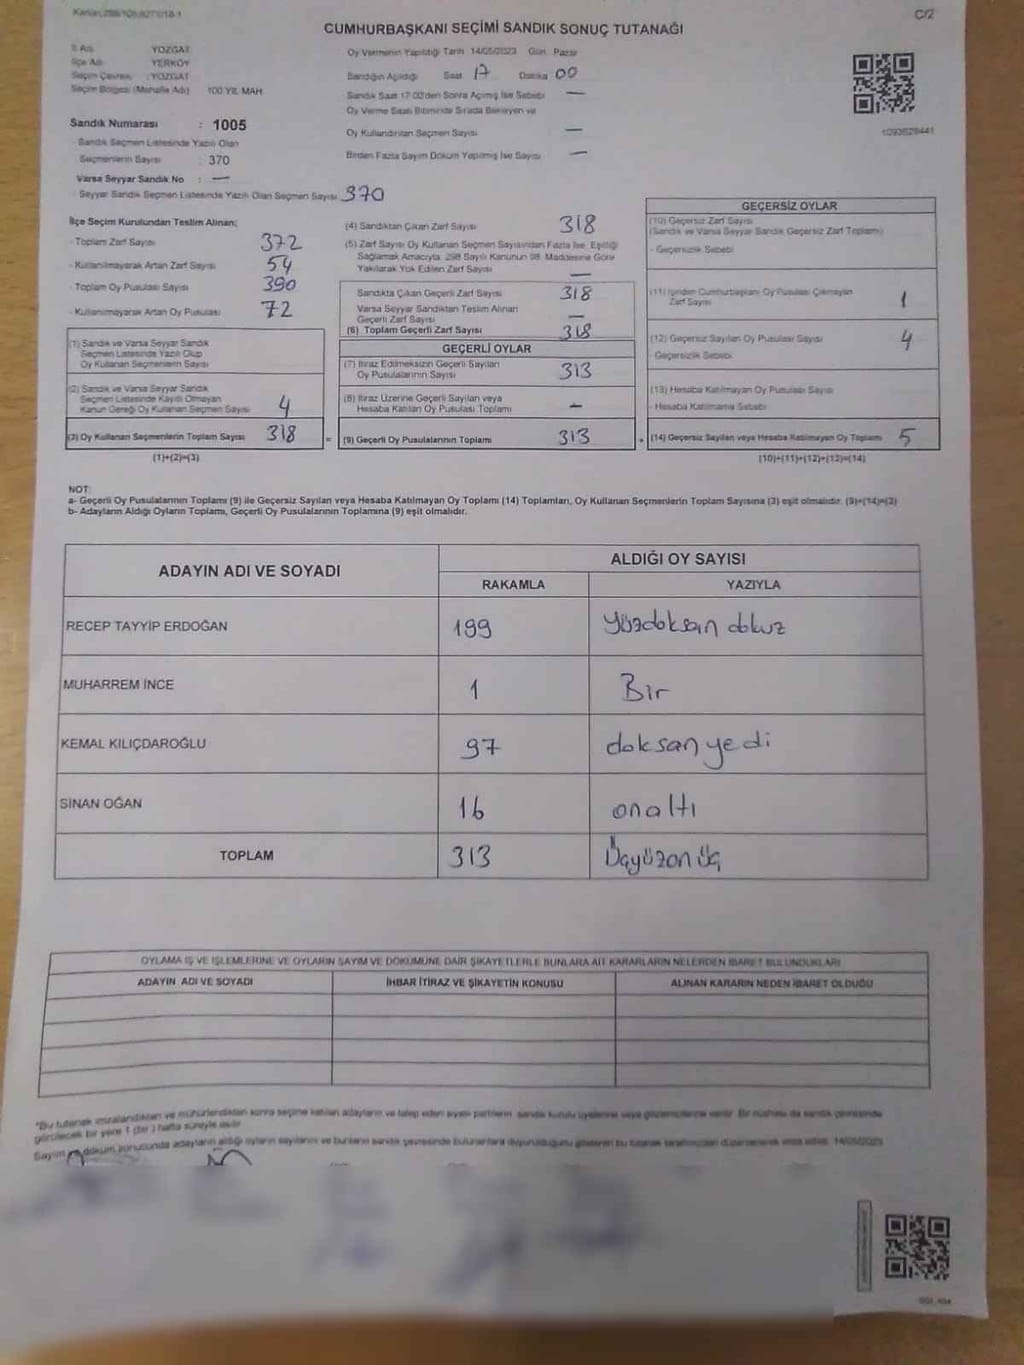 C/2
CUMHURBAŞKANI SEÇİMİ SANDIK SONUÇ TUTANAĞI
İl Adı : YOZGAT
İlçe Adı : YERKÖY
Seçim Çevresi : YOZGAT
Seçim Bölgesi (Mahalle Adı) 100 YIL MAH
Oy Vermenin Yapıldığı Tarih 14/05/2023 Gün Pazar
Sandığın Açıldığı Saat 17 Dakika 00
Sandık Saat 17:00'den Sonra Açımış İse Sebebi —
Oy Verme Saati Bitiminde Sırada Bekleyen ve
Oy Kullandırılan Seçmen Sayısı —
Birden Fazla Sayım Döküm Yapılmış İse Sayısı —
Sandık Numarası : 1005
- Sandık Seçmen Listesinde Yazılı Olan
Seçmenlerin Sayısı : 370
Varsa Seyyar Sandık No : —
- Seyyar Sandık Seçmen Listesinde Yazılı Olan Seçmen Sayısı 370
İlçe Seçim Kurulundan Teslim Alınan;
- Toplam Zarf Sayısı 372
- Kullanılmayarak Artan Zarf Sayısı 54
- Toplam Oy Pusulası Sayısı 390
- Kullanılmayarak Artan Oy Pusulası 72
(1) Sandık ve Varsa Seyyar Sandık
Seçmen Listesinde Yazılı Olup
Oy Kullanan Seçmenlerin Sayısı
(2) Sandık ve Varsa Seyyar Sandık
Seçmen Listesinde Kayıtlı Olmayan
Kanun Gereği Oy Kullanan Seçmen Sayısı 4
(3) Oy Kullanan Seçmenlerin Toplam Sayısı 318
(1)+(2)=(3)
(4) Sandıktan Çıkan Zarf Sayısı 318
(5) Zarf Sayısı Oy Kullanan Seçmen Sayısından Fazla İse, Eşitliği
Sağlamak Amacıyla, 298 Sayılı Kanunun 98. Maddesine Göre
Yakılarak Yok Edilen Zarf Sayısı —
Sandıkta Çıkan Geçerli Zarf Sayısı 318
Varsa Seyyar Sandıktan Teslim Alınan
Geçerli Zarf Sayısı —
(6) Toplam Geçerli Zarf Sayısı 318
GEÇERLİ OYLAR
(7) İtiraz Edilmeksizin Geçerli Sayılan
Oy Pusulalarının Sayısı 313
(8) İtiraz Üzerine Geçerli Sayılan veya
Hesaba Katılan Oy Pusulası Toplamı —
= (9) Geçerli Oy Pusulalarının Toplamı 313
GEÇERSİZ OYLAR
(10) Geçersiz Zarf Sayısı
(Sandık ve Varsa Seyyar Sandık Geçersiz Zarf Toplamı)
- Geçersizlik Sebebi
(11) İçinden Cumhurbaşkanı Oy Pusulası Çıkmayan
Zarf Sayısı 1
(12) Geçersiz Sayılan Oy Pusulası Sayısı 4
- Geçersizlik Sebebi
(13) Hesaba Katılmayan Oy Pusulası Sayısı
- Hesaba Katılmama Sebebi
+ (14) Geçersiz Sayılan veya Hesaba Katılmayan Oy Toplamı 5
(10)+(11)+(12)+(13)=(14)
NOT:
a- Geçerli Oy Pusulalarının Toplamı (9) ile Geçersiz Sayılan veya Hesaba Katılmayan Oy Toplamı (14) Toplamları, Oy Kullanan Seçmenlerin Toplam Sayısına (3) eşit olmalıdır. (9)+(14)=(3)
b- Adayların Aldığı Oyların Toplamı, Geçerli Oy Pusulalarının Toplamına (9) eşit olmalıdır.
ADAYIN ADI VE SOYADI
ALDIĞI OY SAYISI
RAKAMLA YAZIYLA
RECEP TAYYİP ERDOĞAN 199 Yüzdoksan dokuz
MUHARREM İNCE 1 Bir
KEMAL KILIÇDAROĞLU 97 doksan yedi
SİNAN OĞAN 16 onaltı
TOPLAM 313 Üçyüzonüç
OYLAMA İŞ VE İŞLEMLERİNE VE OYLARIN SAYIM VE DÖKÜMÜNE DAİR ŞİKAYETLERLE BUNLARA AİT KARARLARIN NELERDEN İBARET BULUNDUKLARI
ADAYIN ADI VE SOYADI İHBAR İTİRAZ VE ŞİKAYETİN KONUSU ALINAN KARARIN NEDEN İBARET OLDUĞU
"Bu tutanak imzalandıktan ve mühürlendikten sonra seçime katılan adayların ve talep eden siyasi partilerin sandık kurulu üyelerine veya gözlemcilerine verilir. Bir nüshası da sandık çevresinde
görülecek bir yere 1 (bir) hafta süreyle asılır.
Sayım döküm sonucunda adayların aldığı oyların sayılarını ve bunların sandık çevresinde bulunanlara duyurulduğunu gösteren bu tutanak tarafımızdan düzenlenerek imza edildi. 14/05/2023